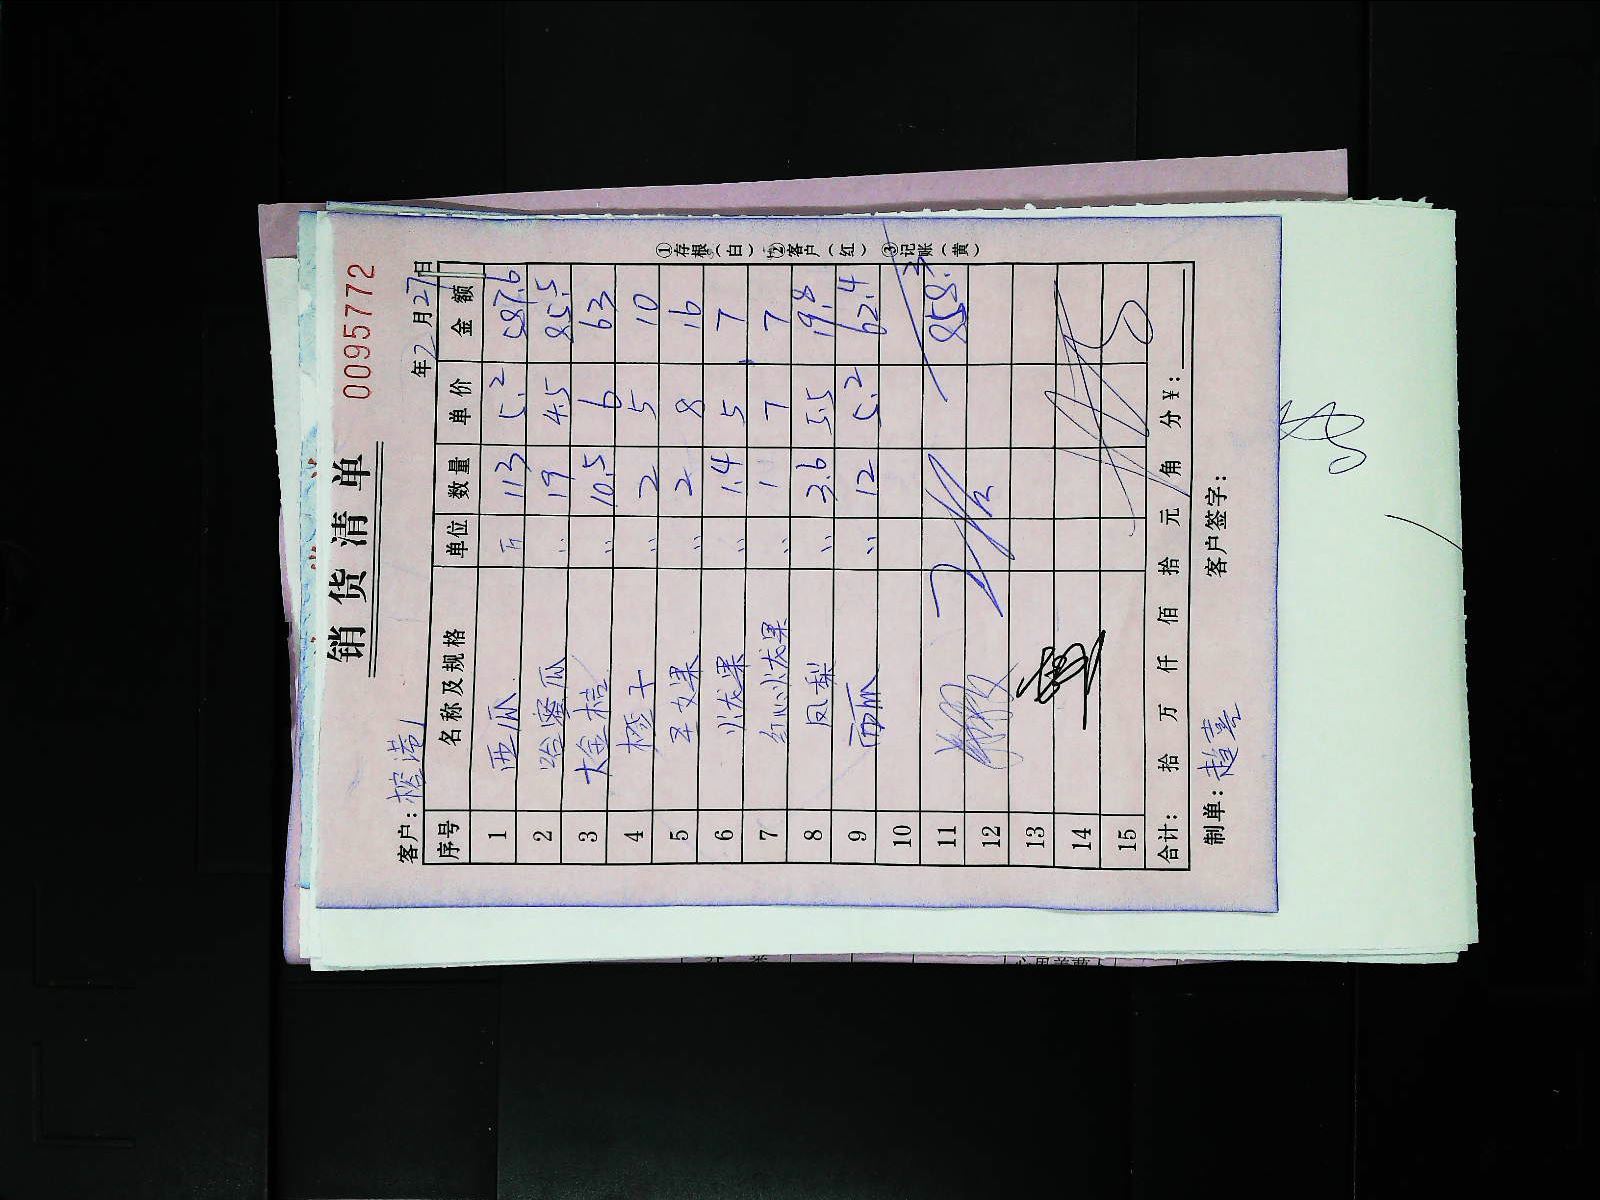 销货清单
0095772
客户： 年2月27日
序号 名称及规格 单位 数量 单价 金额
1 西瓜 斤 113 5.2 587.6
2 哈蜜瓜 〃 19 4.5 85.5
3 大金桔 〃 10.5 6 63
4 橙子 〃 2 5 10
5 圣女果 〃 2 8 16
6 火龙果 〃 1.4 5 7
7 红心火龙果 〃 1 7 7
8 凤梨 〃 3.6 5.5 19.8
9 西瓜 〃 12 5.2 62.4
10
11 858.3
12
13
14
15
合计： 拾 万 仟 佰 拾 元 角 分 ¥：
制单： 客户签字：
①存根（白） ②客户（红） ③记账（黄）